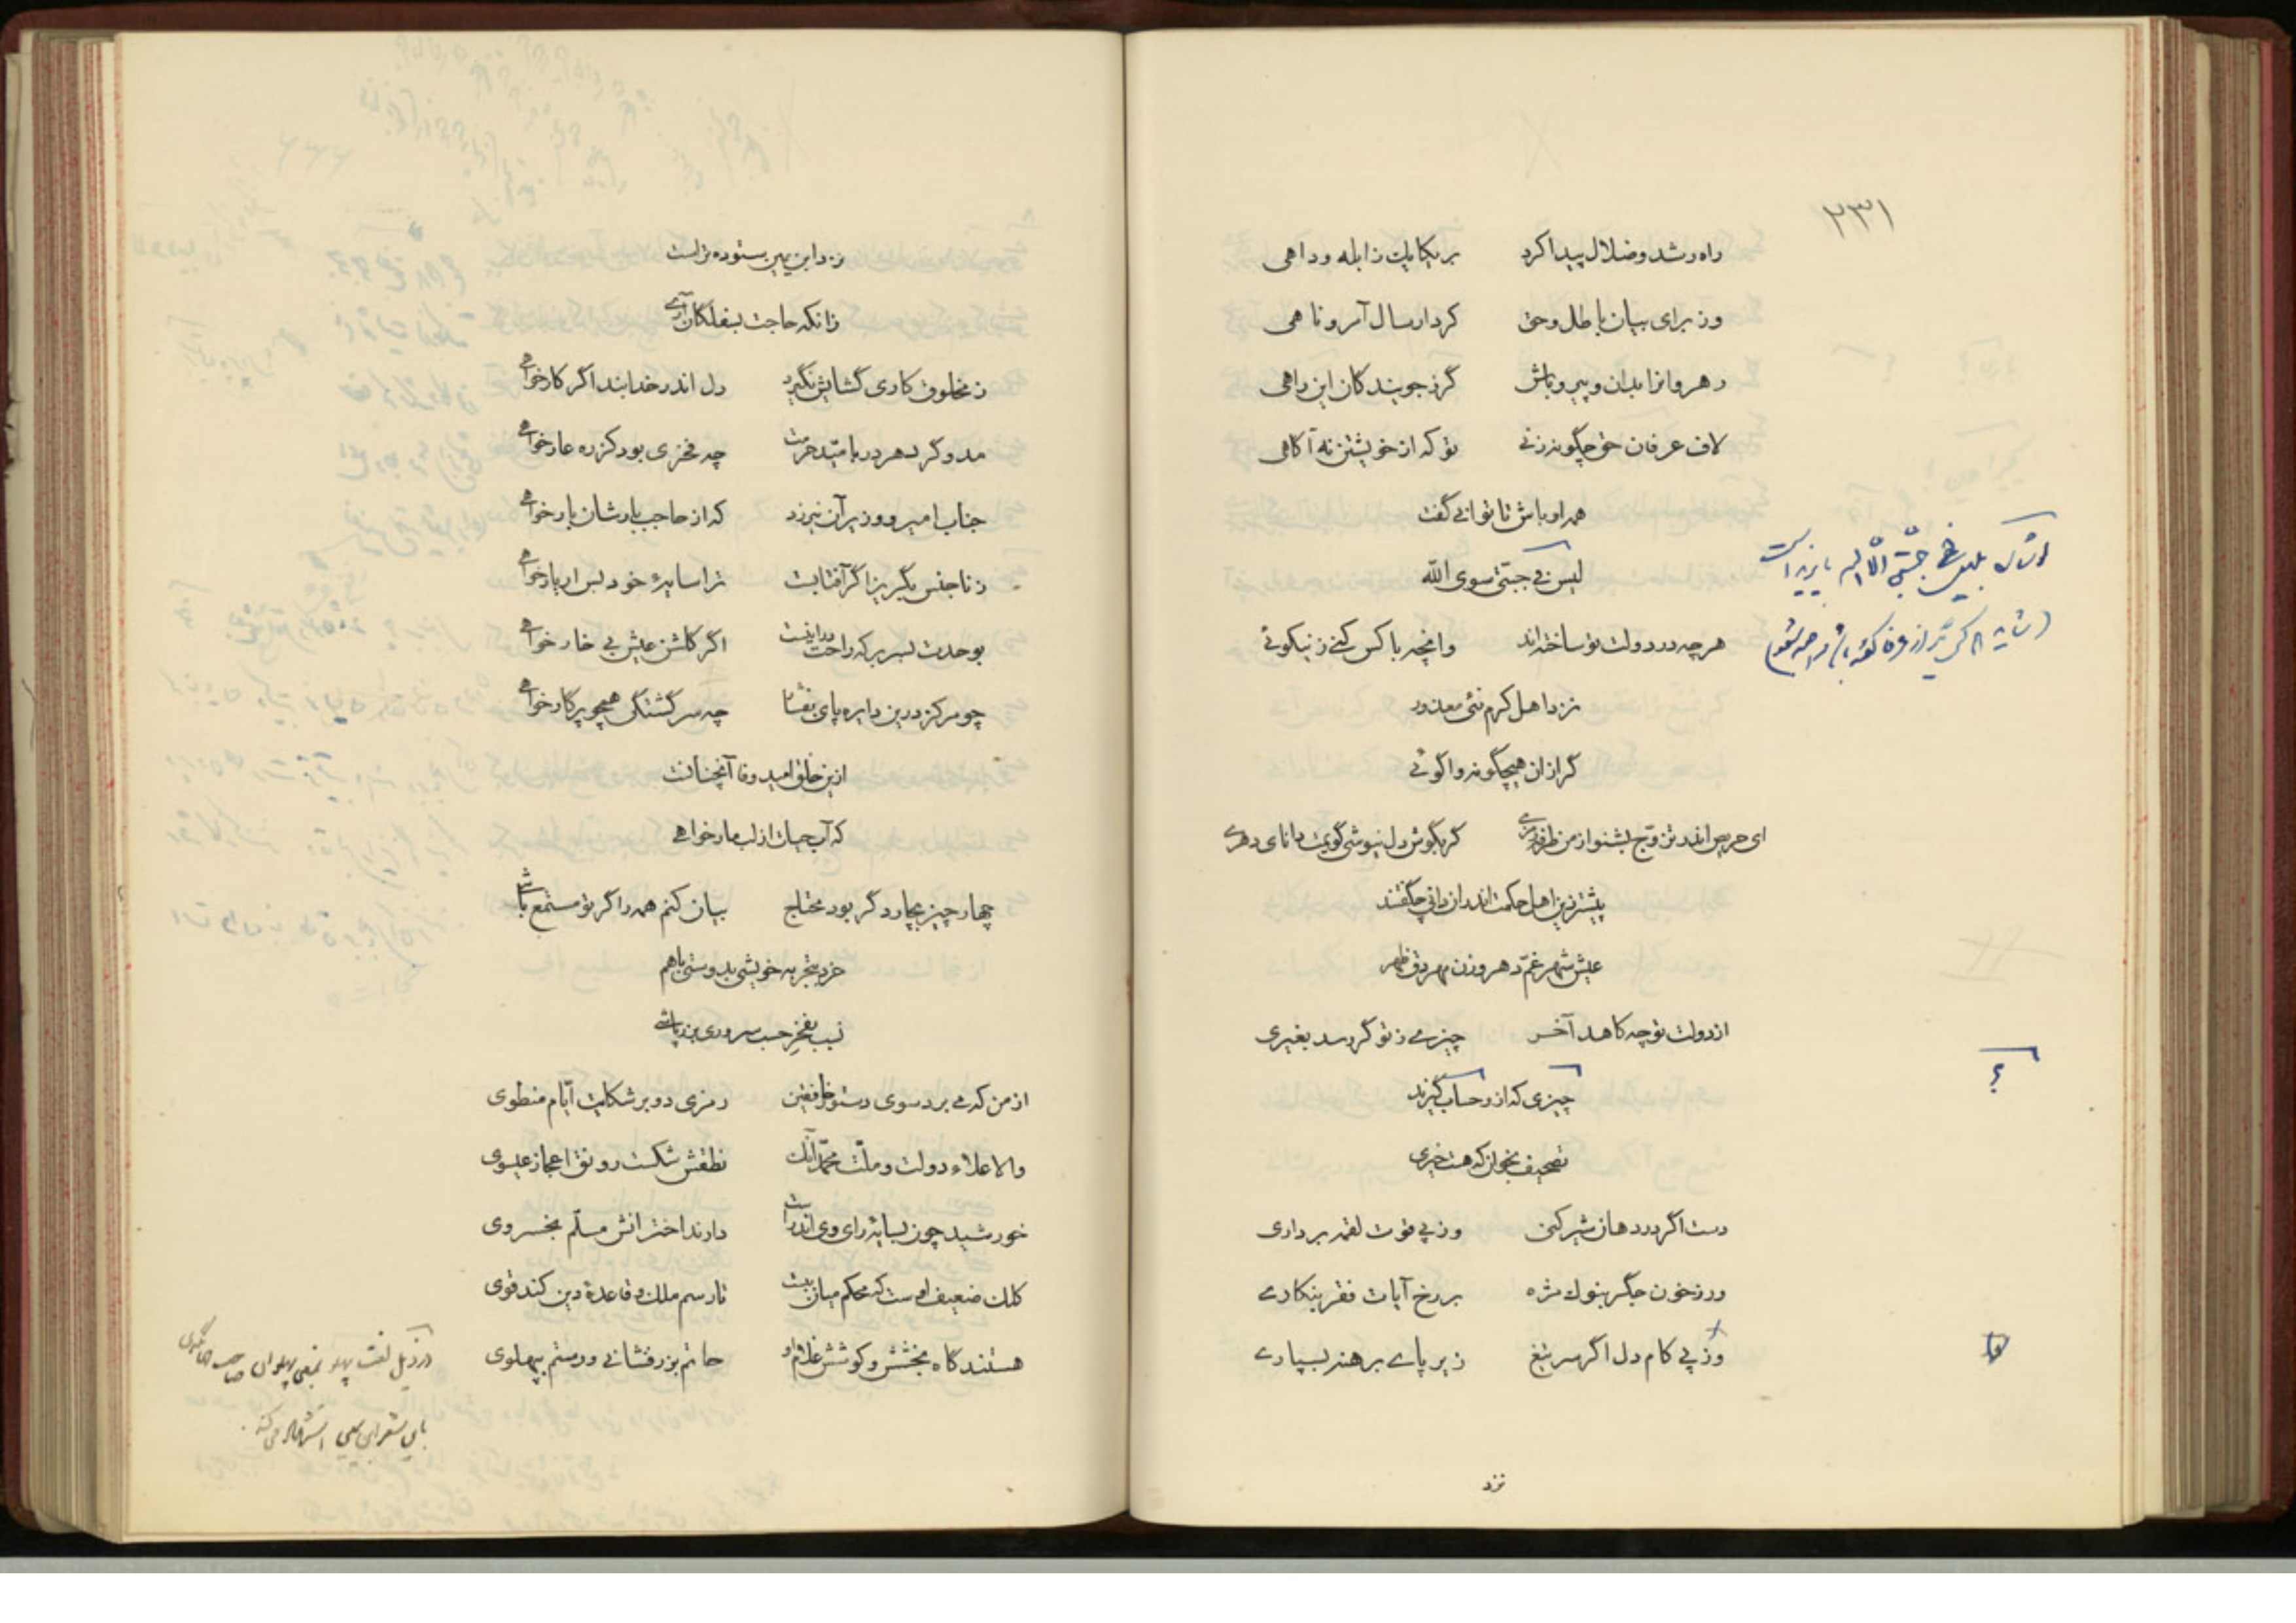 ۲۳۱
راه رشد و ضلال پیدا کرد بر یکایک ز ابله و داهی
وز برای بیان باطل و حق کرد ارسال آمر و ناهی
رهروانرا بدان و پیرو باش گرز جویندگان این راهی
لاف عرفان حق چگونه زنی تو که از خویشتن نه آگاهی
همه او باش تا توانی گفت
لیس فی جبتی سوی الله
هرچه در دولت تو ساخته‌اند وانچه با کس کنی ز نیکوئی
نزد اهل کرم نئی معذور
گر ازان هیچگونه واگوئی
ای حریص اندر تزوج بشنو از من گر بگوش دل نیوشی گویمت دانای دهری
پیشتر زین اهل حکمت اندران دانی چگفتند
عیش شهر غم دهر وزن مهر دق ظهر
از دولت تو چه کاهد آخر چیزی ز تو گر رسد بغیری
؟
چیزی که ازو حساب گیرند
تصحیف بخوان که هست خیری
دست اگر در دهان شیر کنی وز پی قوت لقمه برداری
ور ز خون جگر بنوک مژه بر رخ آیات فقر بنگاری
وز پی کام دل اگر سر تیغ زیر پای برهنه بسپاری
نزد
نزد این پیر ستوده تراست
زانکه حاجت بسفلگان آری
ز مخلوق کاری گشایش نگیرد دل اندر خدا بند اگر کار خواهی
مدو گرد هر در بامید حرمت چه فخری بود کز ره عار خواهی
جناب امیر و وزیر آن نیرزد که از حاجب بارشان بار خواهی
ز ناجنس بگریز اگر آفتابست ترا سایۀ خود بس ار یار خواهی
بوحدت بسر بر که راحت اگر گلشن عیش بی خار خواهی
چو مرکز درین دایره پای بفشا چه سرگشتگی همچو پرگار خواهی
ازین خلق امید وفا آنچنانست
که آب حیات از لب مار خواهی
چهار چیز بچار دگر بود محتاج بیان کنم همه را اگر تو مستمع باشی
خرد بتجربه خویشی بدوستی باهم
نسب بفخر حسب سروری بزرپاشی
از من که می برد سوی دستور خافقین رمزی دو بر شکایت ایام منطوی
والا علاء دولت و ملت محمد آنک نطقش شکست رونق اعجاز عیسوی
خورشید چون بسایۀ رای وی اندراست دارند اخترانش مسلم بخسروی
کلک ضعیف اوست که محکم میان ببست تا رسم ملک و قاعدۀ دین کند قوی
هستند گاه بخشش و کوشش غلام او حاتم بزرفشانی و رستم بپهلوی
در ذیل لغت پهلو بمعنی پهلوان صاحب
باین شعر ابن یمین استشهاد می‌کند.